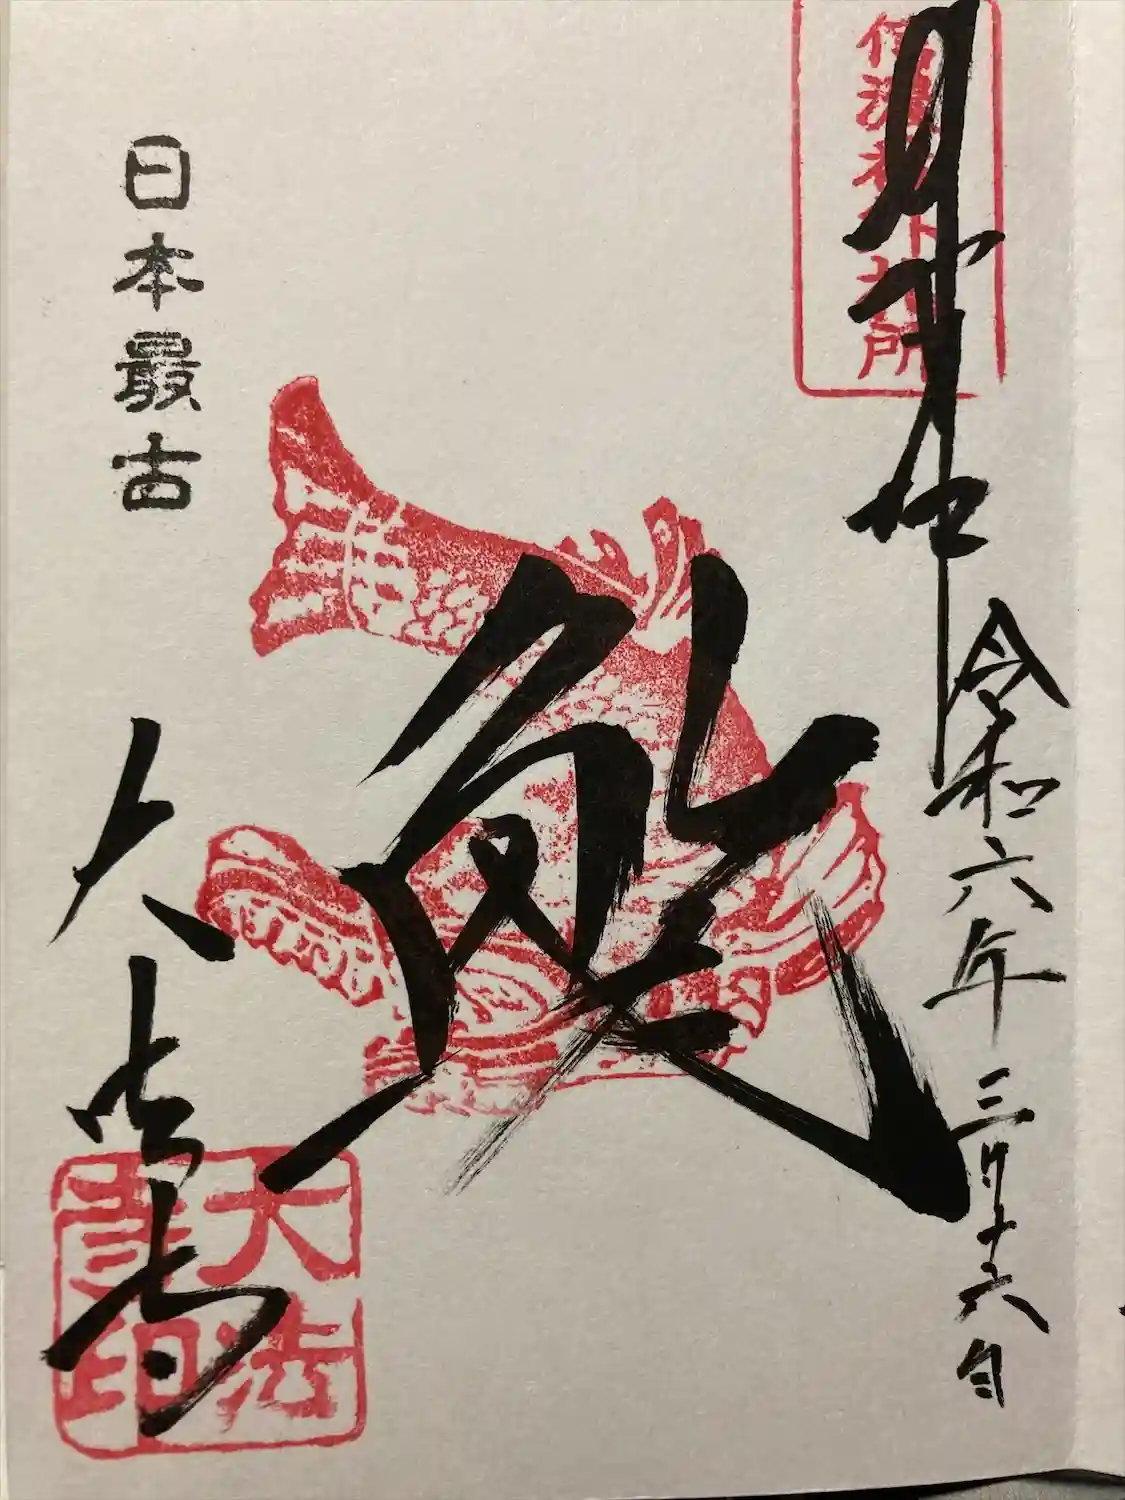 奉拝
信濃
札所
令和六年三月十六日
鯱
日本最古
大法寺
大法寺印